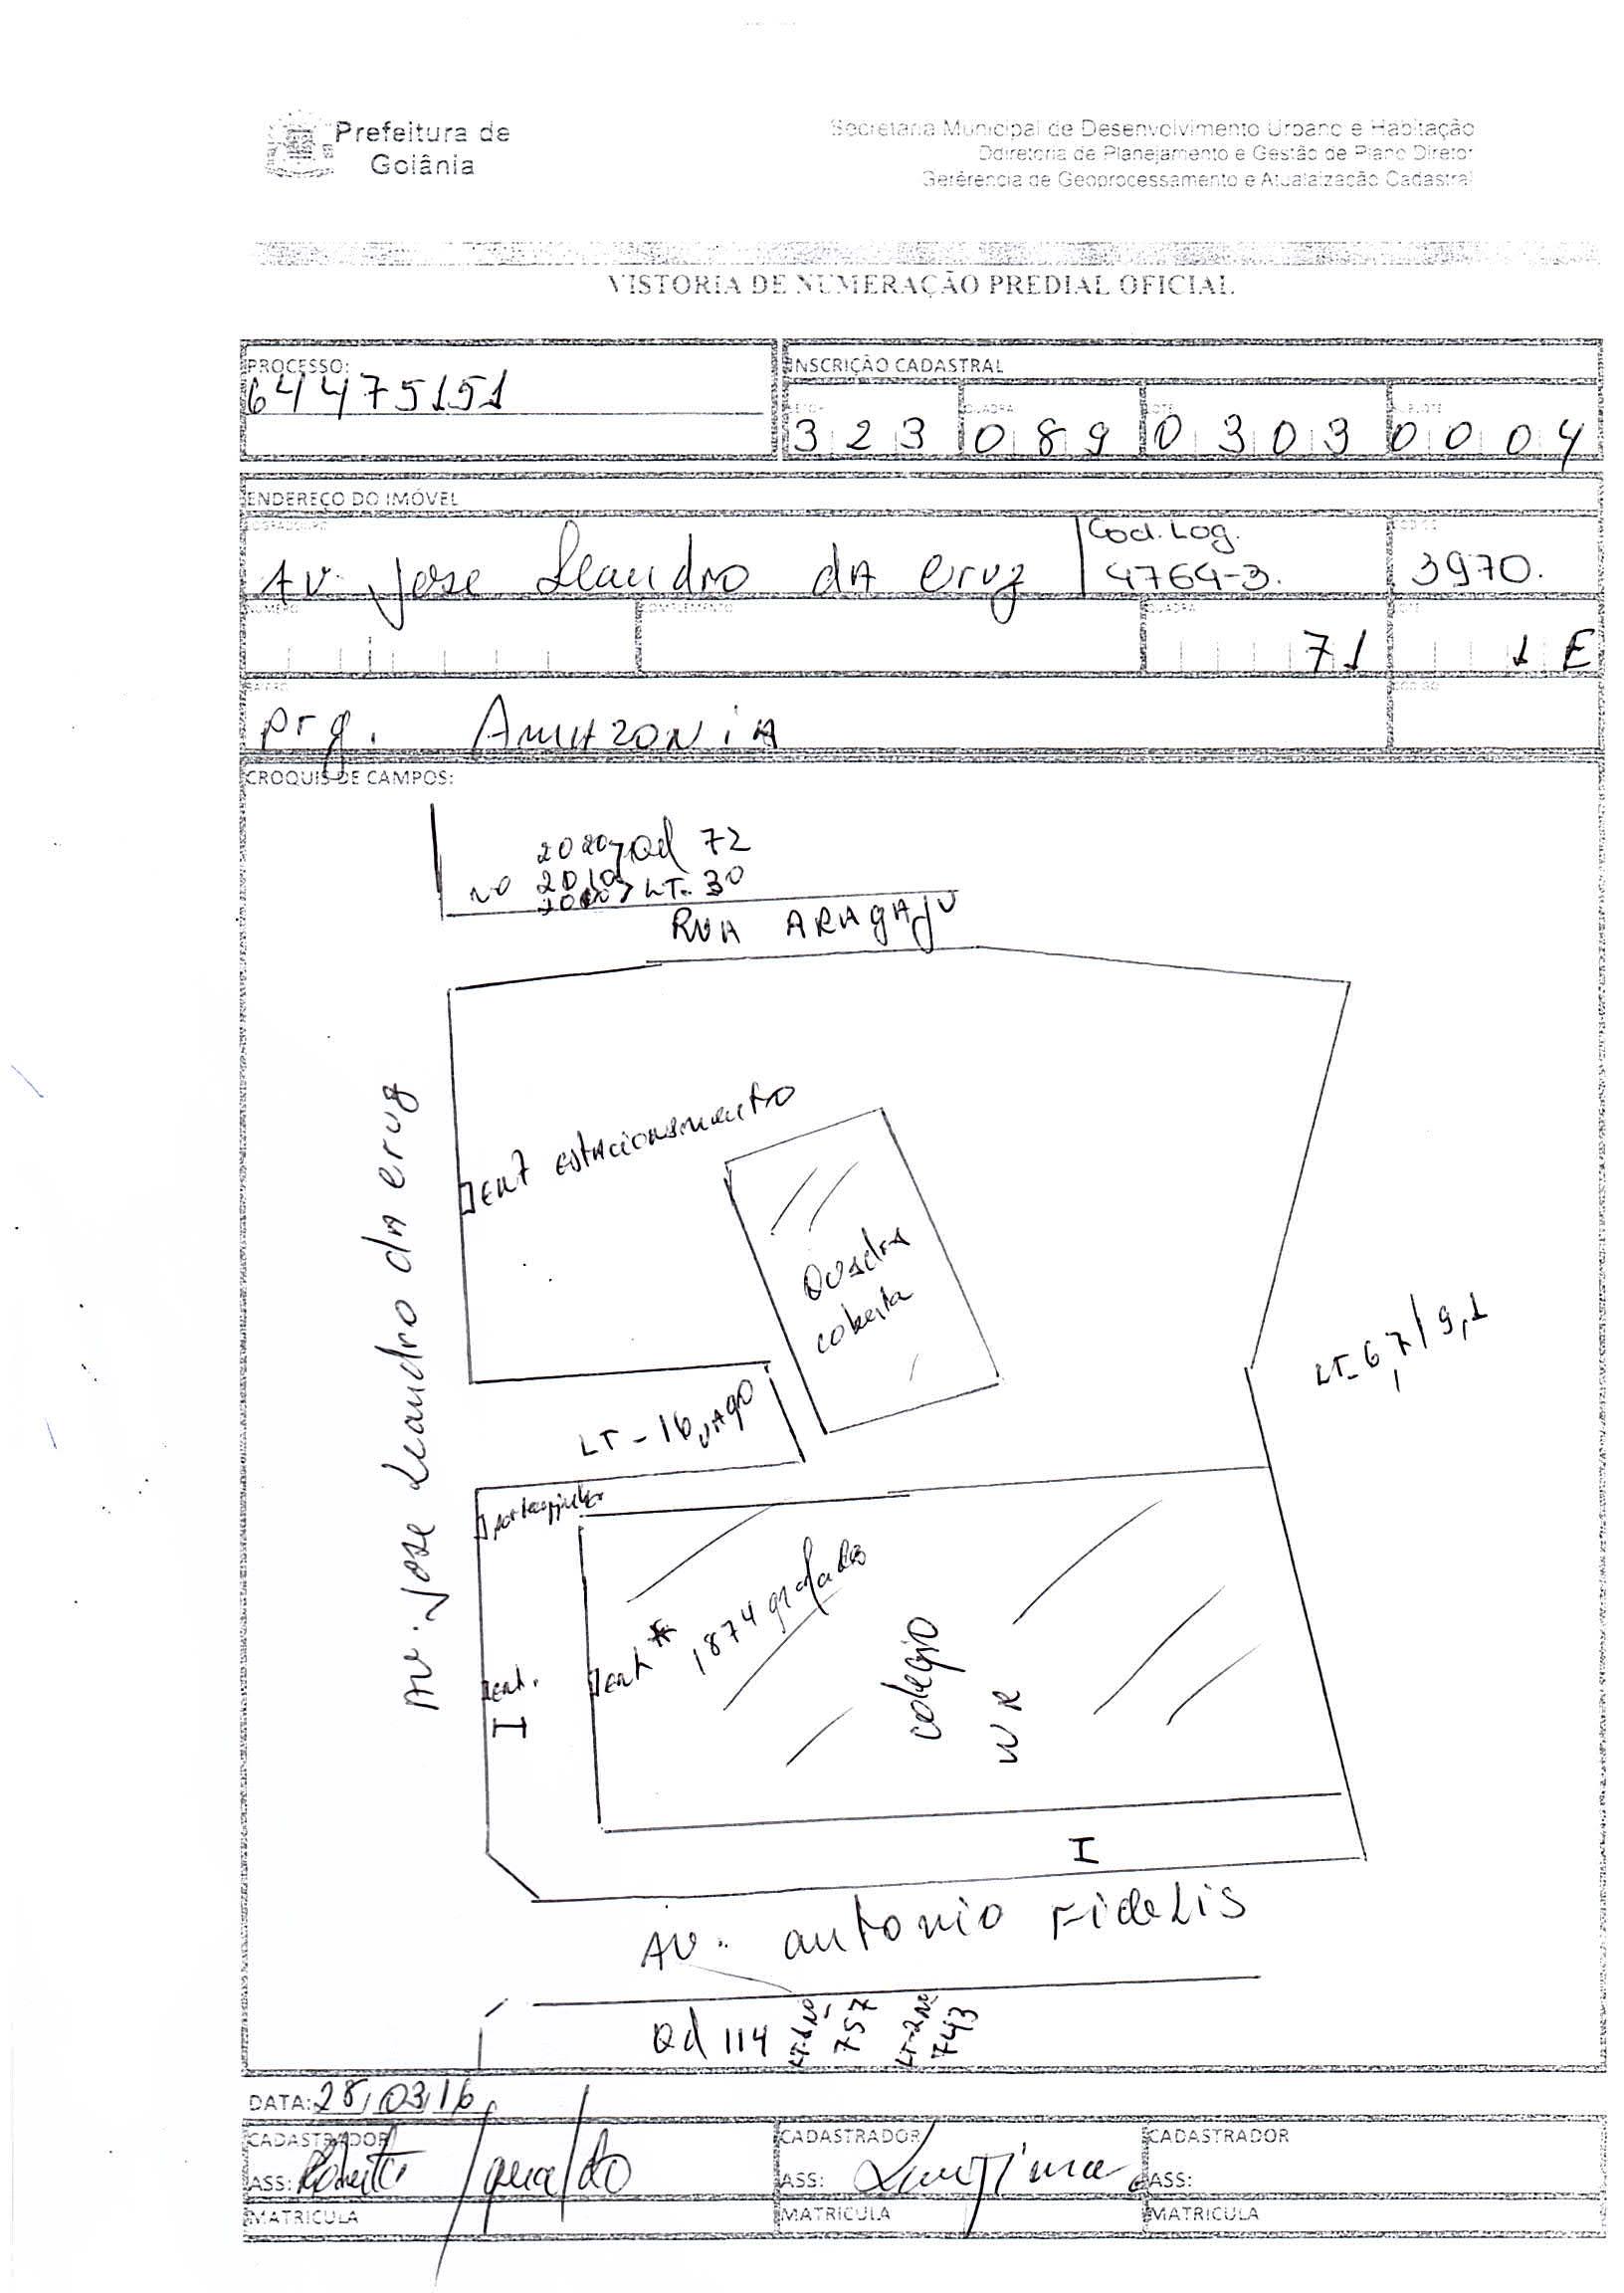 Prefeitura de
Goiânia
Secretaria Municipal de Desenvolvimento Urbano e Habitação
Ddiretoria de Planejamento e Gestão de Plano Diretor
Gerêrencia de Geoprocessamento e Atualaização Cadastral
VISTORIA DE NUMERAÇÃO PREDIAL OFICIAL
PROCESSO:
64475151
INSCRIÇÃO CADASTRAL
QUADRA
323 089 0303 0004
ENDEREÇO DO IMÓVEL
LOGRADOURO
Av. Jose Leandro dA cruz
Cod. Log.
4764-3.
3970.
NUMERO
COMPLEMENTO
QUADRA
71
1 E
BAIRRO
prq. AmAzoniA
CROQUIS DE CAMPOS:
2020 Qd 72
no 2010 LT. 30
RUA ARAcAju
ent estacionamento
Quadra
coberta
Av. Jose Leandro dA cruz
LT-6,7/9,1
LT-16 vago
ent * 1874 grafados
ent.
I
colegio
WR
I
Av. antonio Fidelis
Qd 114
LT-1 no
757
LT-2 no
743
DATA: 28/03/16
CADASTRADOR
ASS:
MATRICULA
CADASTRADOR
ASS:
MATRICULA
CADASTRADOR
ASS:
MATRICULA